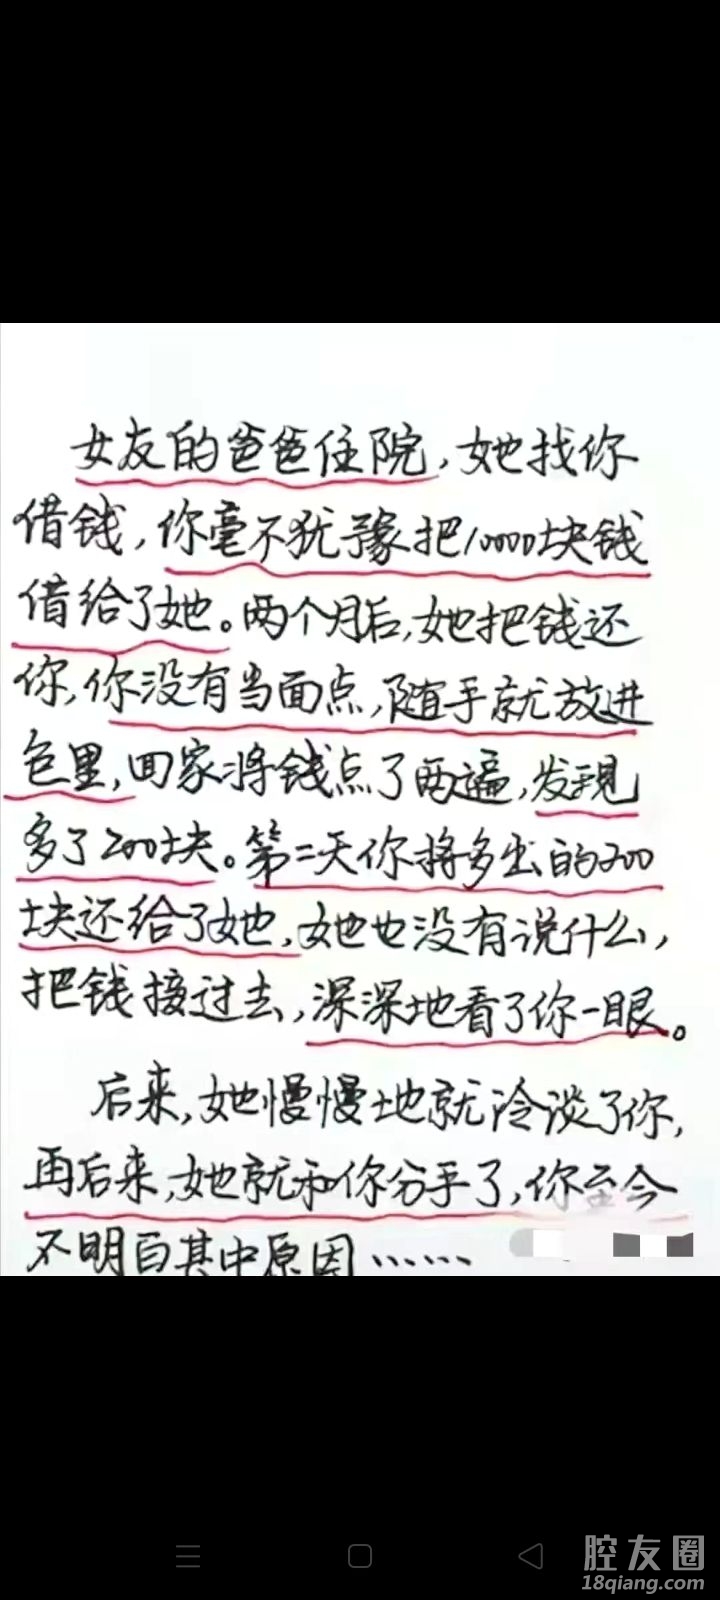 女友的爸爸住院，她找你
借钱，你毫不犹豫把10000块钱
借给了她。两个月后，她把钱还
你，你没有当面点，随手就放进
包里，回家将钱点了两遍，发现
多了200块。第二天你将多出的200
块还给了她，她也没有说什么，
把钱接过去，深深地看了你一眼。
后来，她慢慢地就冷淡了你，
再后来，她就和你分手了，你至今
不明白其中原因……
腔友圈
18qiang.com